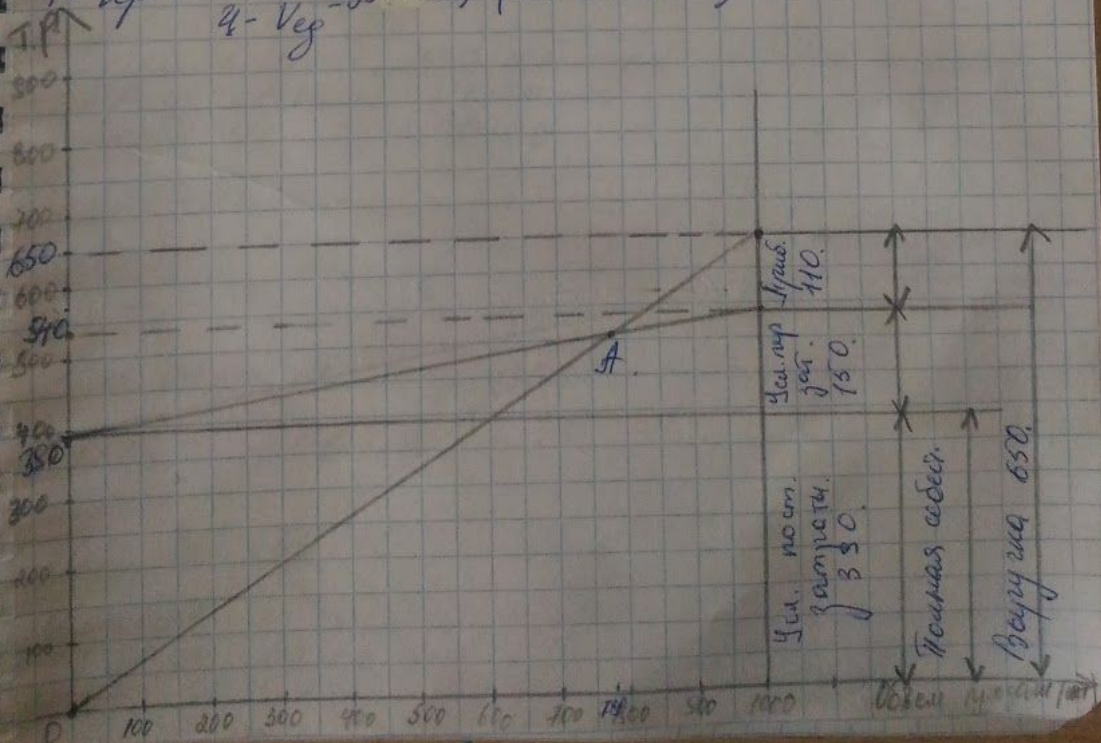 Ц - Vед
т.р
900
800
700
650
600
540
500
400
390
300
200
100
0
100
200
300
400
500
600
700
800
900
1000
А
Приб.
110.
Усл. пер
зат.
150.
Усл. пост.
затраты.
390.
Полная себест.
Выручка 650.
Объем продаж (шт)